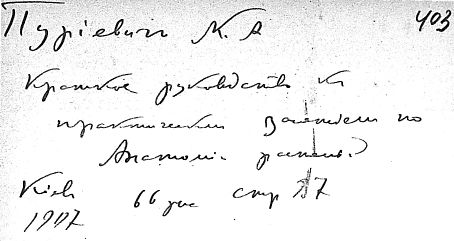 Пуріевичъ К. А
403
Краткое руководство къ
практическимъ занятіямъ по
Анатоміи растеній
Кіевъ
66 рис стр 87
1907